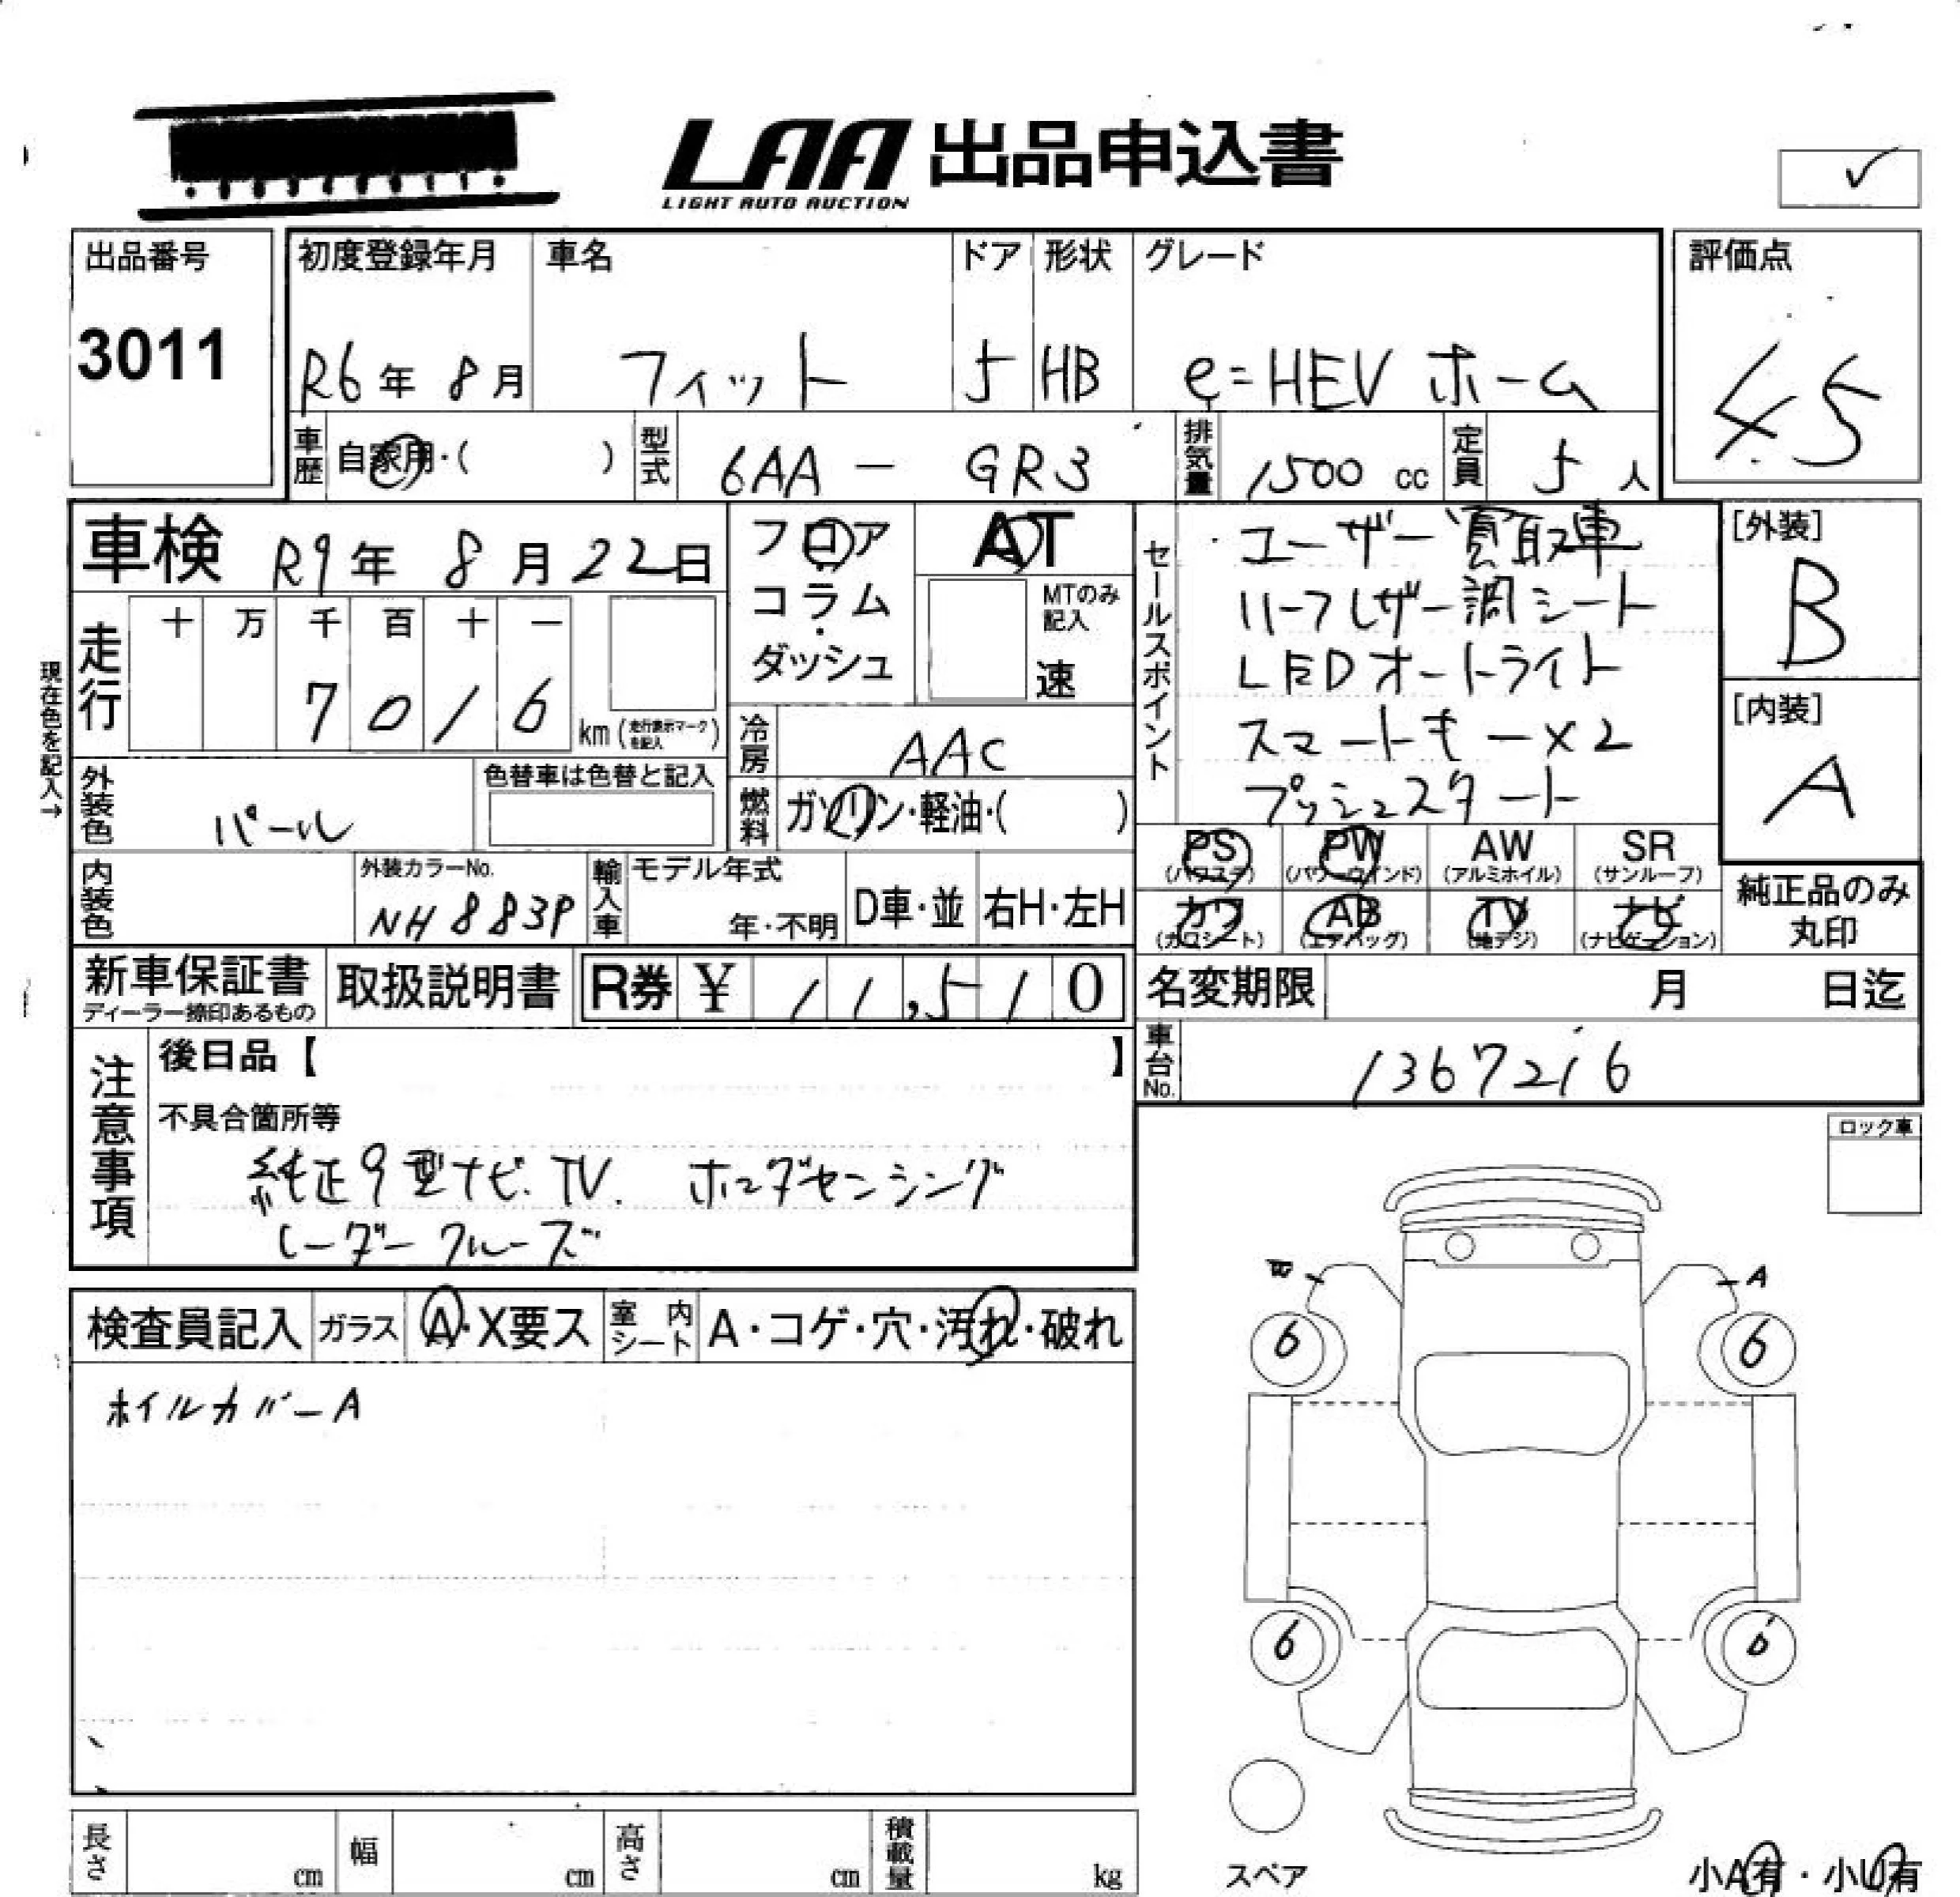 LAA 出品申込書
LIGHT AUTO AUCTION
✓
出品番号
3011
初度登録年月
R6年 8月
車名
フィット
ドア
5
形状
HB
グレード
e=HEV ホーム
評価点
4.5
車歴 自家用・( )
型式 6AA - GR3
排気量 1500 cc
定員 5 人
車検 R9年 8月 22日
フロア
コラム
・
ダッシュ
AT
MTのみ
記入
速
セールスポイント
ユーザー買取車
ハーフレザー調シート
LEDオートライト
スマートキー×2
プッシュスタート
[外装]
B
[内装]
A
現在色を記入→
走行
十 万 千 百 十 一
7 0 1 6 km (走行表示マークを記入)
冷房 AAC
燃料 ガソリン・軽油・( )
外装色 パール
色替車は色替と記入
PS (パワステ)
PW (パワーウインド)
AW (アルミホイル)
SR (サンルーフ)
カワ (カワシート)
AB (エアバッグ)
TV (地デジ)
ナビ (ナビゲーション)
純正品のみ
丸印
内装色
外装カラーNo.
NH883P
輸入車
モデル年式
年・不明
D車・並
右H・左H
新車保証書
ディーラー捺印あるもの
取扱説明書
R券 ¥ 11,510
名変期限 月 日迄
車台No. 1367216
注意事項
後日品【 】
不具合箇所等
純正9型ナビ.TV. ホンダセンシング
レーダークルーズ
ロック車
検査員記入
ガラス A・X要ス
室内シート A・コゲ・穴・汚れ・破れ
ホイルカバーA
A
6
6
6
6
スペア
小A有・小U有
長さ cm
幅 cm
高さ cm
積載量 kg